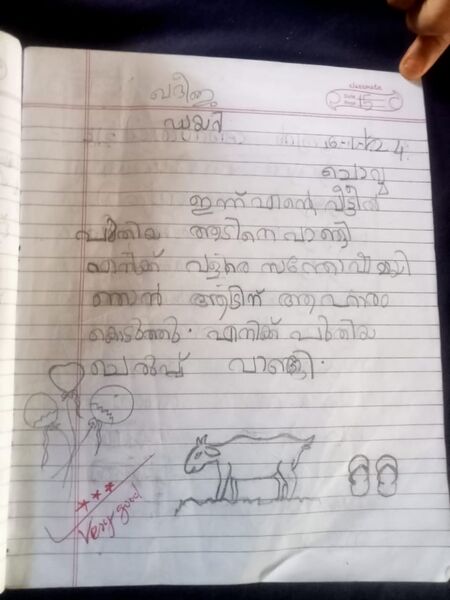 classmate
Date
Page 15
ഖദീജ
ഡയറി
16-1-24
ചൊവ്വ
ഇന്ന് എന്റെ വീട്ടിൽ
പുതിയ ആടിനെ വാങ്ങി
എനിക്ക് വളരെ സന്തോഷമായി
ഞാൻ ആടിന് ആഹാരം
കൊടുത്തു. എനിക്ക് പുതിയ
ചെരുപ്പ് വാങ്ങി.
Very good